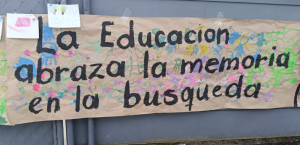 La Educacion
abraza la memoria
en la busqueda